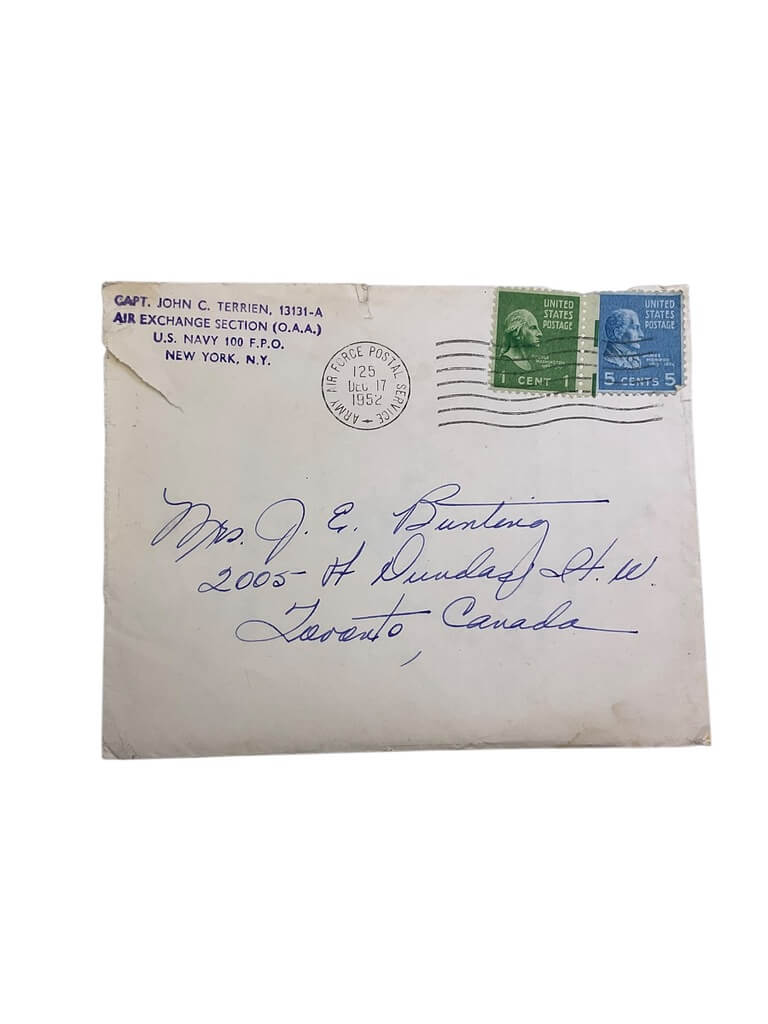 CAPT. JOHN C. TERRIEN, 13131-A
AIR EXCHANGE SECTION (O.A.A.)
U.S. NAVY 100 F.P.O.
NEW YORK, N.Y.
ARMY AIR FORCE POSTAL SERVICE
125
DEC 17
1952
UNITED
STATES
POSTAGE
1 CENT 1
UNITED
STATES
POSTAGE
5 CENTS 5
Mrs. J. E. Bunting
2005 A Dundas St. W.
Toronto, Canada